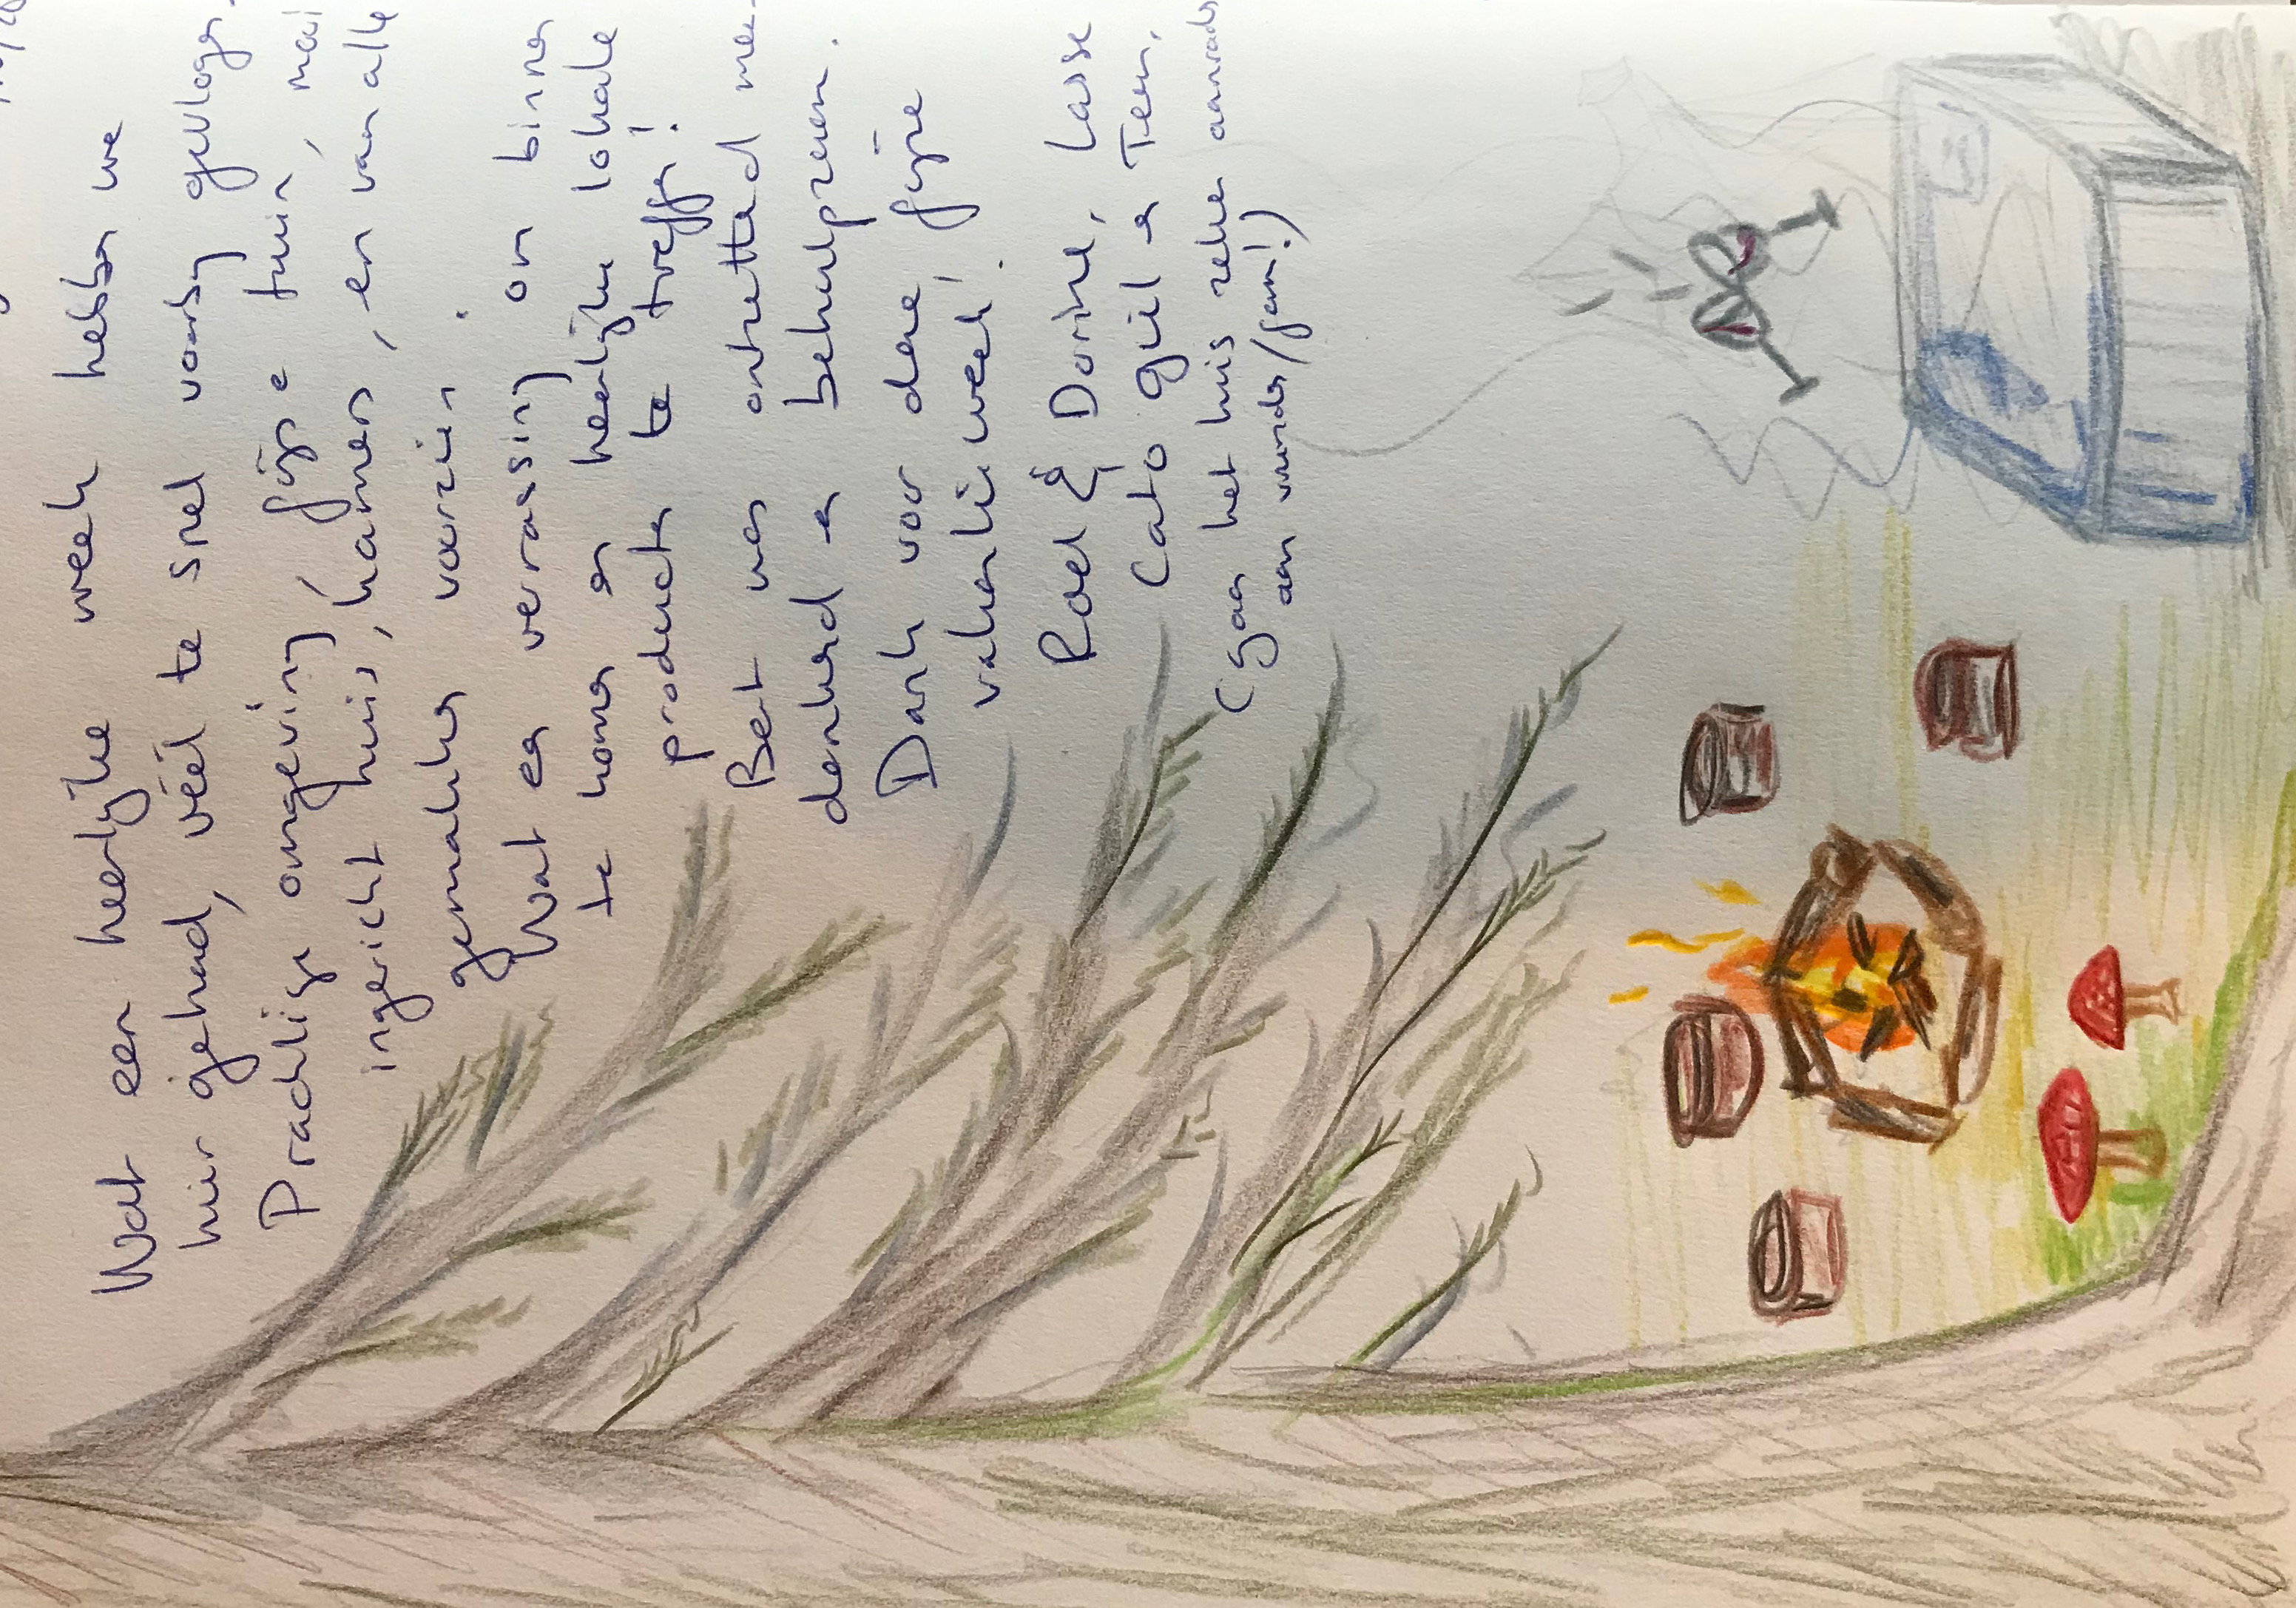 Wat een heerlijke week hebben we
hier gehad, véél te snel voorbij gevlogen.
Prachtige omgeving, fijne tuin, mooi
ingericht huis, kamers, en van alle
gemakken voorzien.
Wat een verrassing om binnen
te komen en heerlijke lokale
producten te treffen!
Bert was ontzettend mee-
denkend en behulpzaam.
Dank voor deze fijne
vakantieweek!
Roel & Dorine, Lasse
Cato Guil en Teun.
(gaan het huis zeker aanraden
aan vrienden/fam!)